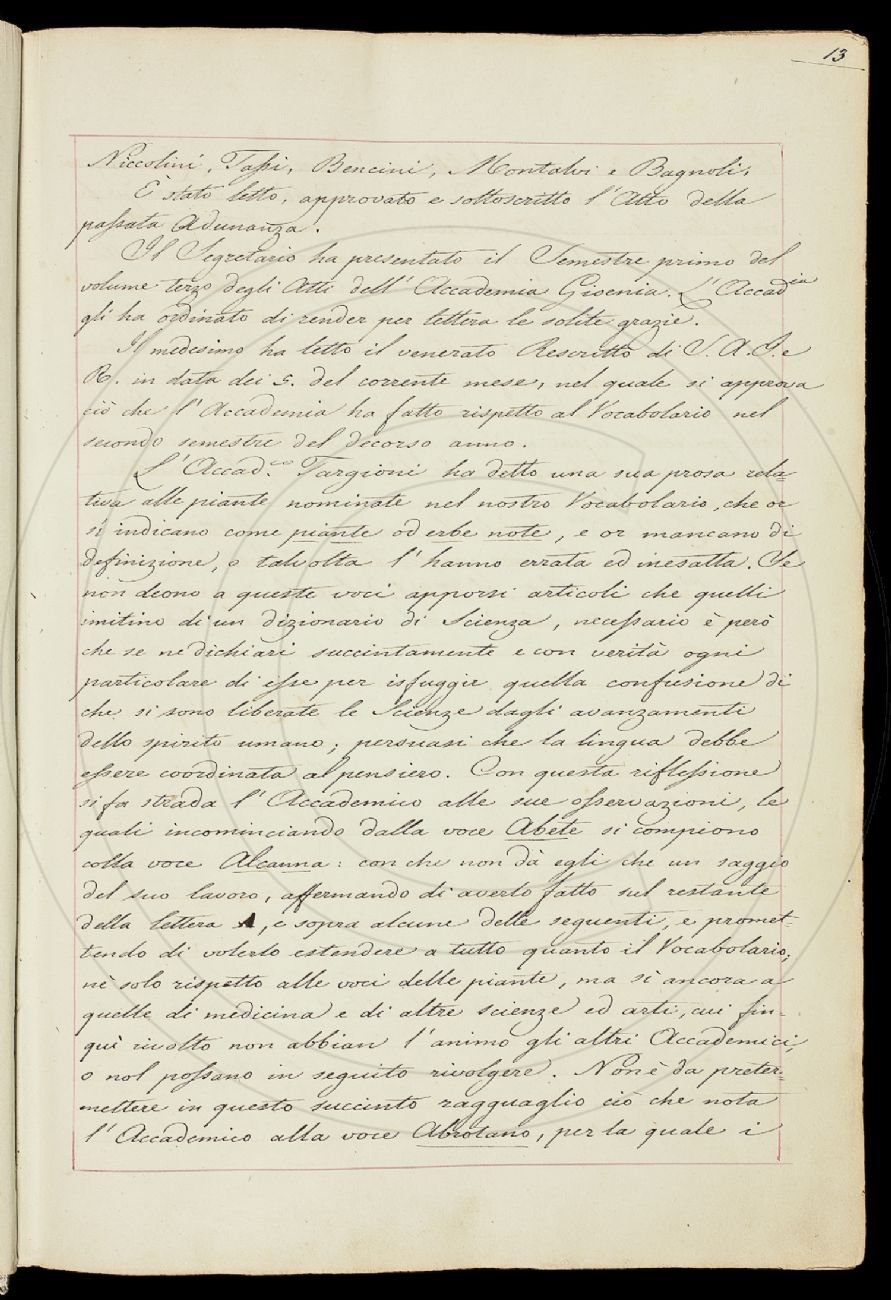 13
Niccolini, Tassi, Bencini, Montalvi e Bagnoli.
È stato letto, approvato e sottoscritto l'Atto della
passata Adunanza.
Il Segretario ha presentato il Semestre primo del
volume terzo degli Atti dell'Accademia Gioenia. L'Accad.ia
gli ha ordinato di render per lettera le solite grazie.
Il medesimo ha letto il venerato Rescritto di S. A. I. e
R. in data dei 5. del corrente mese, nel quale si approva
ciò che l'Accademia ha fatto rispetto al Vocabolario nel
secondo semestre del decorso anno.
L'Accad.co Targioni ha detto una sua prosa rela=
tiva alle piante nominate nel nostro Vocabolario, che or
si indicano come piante od erbe note, e or mancano di
definizione, o talvolta l'hanno errata ed inesatta. Se
non deono a queste voci apporsi articoli che quelli
imitino di un dizionario di Scienza, necessario è però
che se ne dichiari succintamente e con verità ogni
particolare di esse per isfuggir quella confusione di
che si sono liberate le Scienze dagli avanzamenti
dello spirito umano; persuasi che la lingua debbe
essere coordinata al pensiero. Con questa riflessione
si fa strada l'Accademico alle sue osservazioni, le
quali incominciando dalla voce Abete si compiono
colla voce Alcanna: con che non dà egli che un saggio
del suo lavoro, affermando di averlo fatto sul restante
della lettera A, e sopra alcune delle seguenti, e promet=
tendo di volerlo estendere a tutto quanto il Vocabolario;
nè solo rispetto alle voci delle piante, ma sì ancora a
quelle di medicina e di altre scienze ed arti, cui fin=
quì rivolto non abbian l'animo gli altri Accademici,
o nol possano in seguito rivolgere. Non è da preter=
mettere in questo succinto ragguaglio ciò che nota
l'Accademico alla voce Abrotano, per la quale i